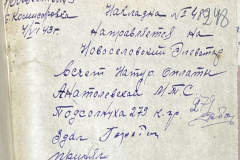 с. Комиссаровка
4/VI 43г
Накладна № 48948
Направляется на
Новоселовский Элеватор
Всчет Натур. Оплаты
Анатолевская МТС
Подсолнуха 279 к.гр.
279
Здал
принял